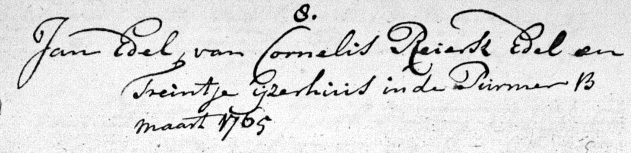 8.
Jan Edel, van Cornelis Reiersz Edel en
Treintje Yzerhuis in de Purmer 13
maart 1765